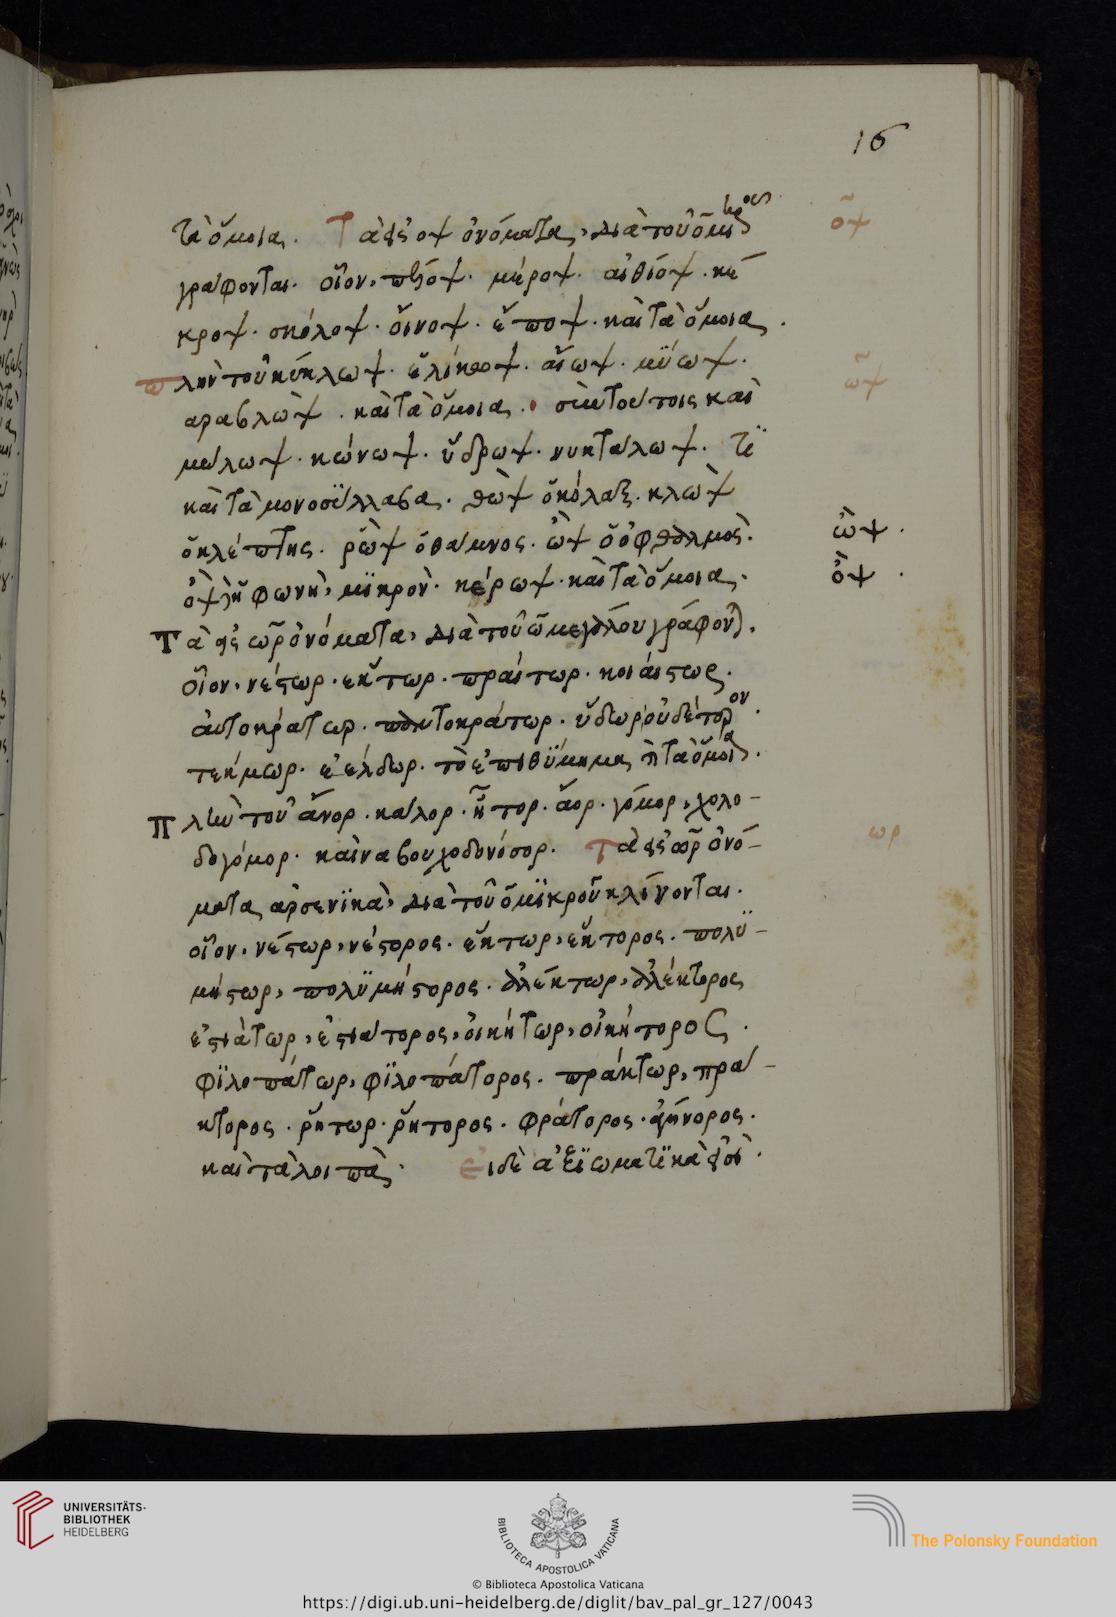 16
τὰ ὅμοια. Τὰ εἰς οψ ὀνόματα, διὰ τοῦ ὀμικροῦ
γράφονται. οἷον, πέλοψ. μέροψ. αἰθίοψ. κέ
κροψ. σκόλοψ. οἶνοψ. ἔποψ. καὶ τὰ ὅμοια.
πλὴν τοῦ κύκλωψ. ἑλίκωψ. αἴσωψ. μύωψ.
αραβλώψ. καὶ τὰ ὅμοια. σὺν τούτοις καὶ
μώλωψ. κώνωψ. ὕδρωψ. νυκτάλωψ. ἔτϊ
καὶ τὰ μονοσΰλλαβα. θὼψ ὁ κόλαξ. κλὼψ
ὁ κλέπτης. ῥὼψ ὁ θάμνος. ὢψ ὁ ὀφθαλμὸς.
ὂψ ἡ φωνὴ, μϊκρὸν. κέρωψ. καὶ τὰ ὅμοια.
Τὰ εἰς ωρ ὀνόματα, διὰ τοῦ ω μεγάλου γράφονται.
οἷον, νέστωρ. εκτωρ. πραίτωρ. κοιάιστωρ.
ἀυτοκράτωρ. παντοκράτωρ. ὕδωρ οὐδέτερον.
τεκμωρ. ἐέλδωρ. τὸ ἐπιθΰμημα, καὶ τὰ ὅμοια.
Πλὴν τοῦ ἄνορ. κάλορ. ἦτορ. ἄορ. γόμορ, χολο-
δογόμορ. καὶ ναβουχοδονόσορ. Τὰ εἰς ωρ ὀνό-
ματα ἀρσενϊκὰ, διὰ τοῦ ὀμϊκροῦ κλίνονται.
οἷον, νέστωρ, νέστορος. ἕκτωρ, ἕκτορος. πολϋ-
μήστωρ, πολϋμήστορος. ἀλέκτωρ, ἀλέκτορος
ἑστιάτωρ, ἑστιάτορος, ὀικήτωρ, οἰκήτορος.
φϊλοπάτωρ, φϊλοπάτορος. πράκτωρ, πρά-
κτορος. ῥήτωρ. ῥήτορος. φράτορος. ἀγήνορος.
καὶ τὰ λοιπὰ. εἰ δὲ ἀξϊωματϊκὰ εἰσὶ.
ὀψ
ωψ
ὢψ.
ὂψ.
ωρ
UNIVERSITÄTS-
BIBLIOTHEK
HEIDELBERG
BIBLIOTECA APOSTOLICA VATICANA
The Polonsky Foundation
© Biblioteca Apostolica Vaticana
https://digi.ub.uni-heidelberg.de/diglit/bav_pal_gr_127/0043